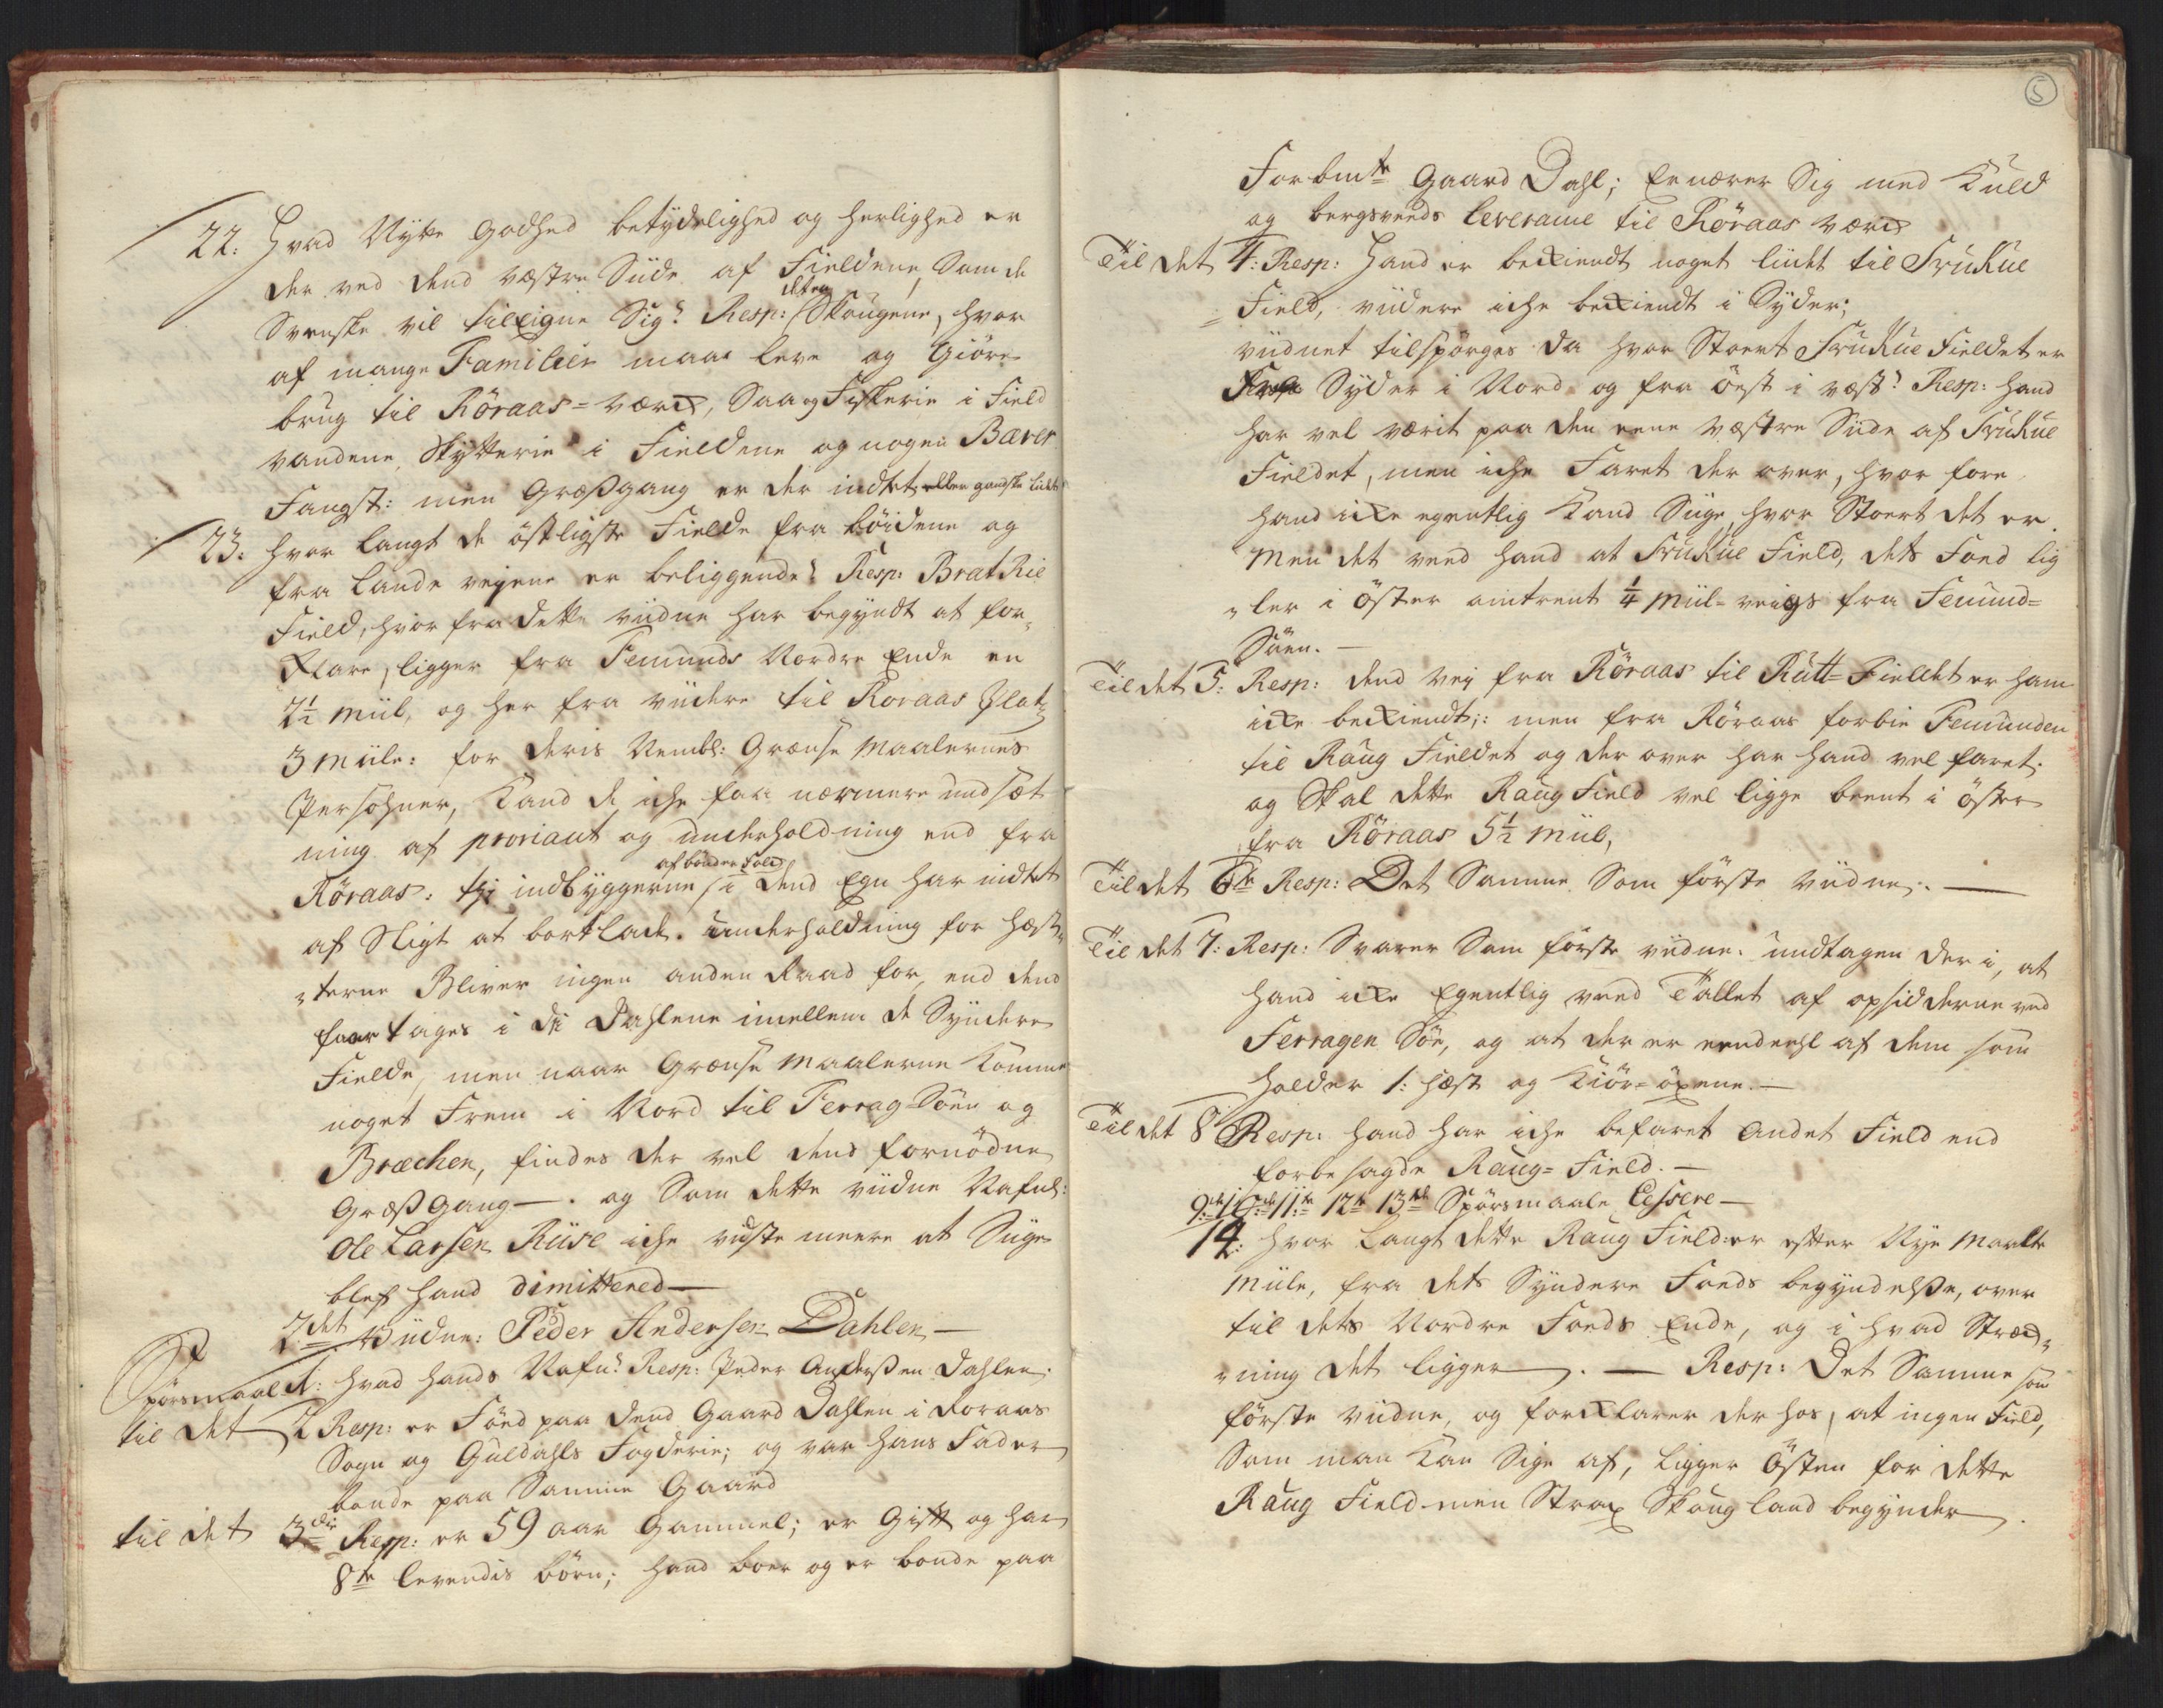 22. Hvad Nytte Godhed betydelighed og herlighed er
der ved dend væstre Siide af Fieldene, Som de
Svenske vil tilEigne Sig? Resp: Skougene, hvor
af mange Familier maae leve og Giöre
brug til Röraas-værck, Saa og Fiskerie i Field
vandene, Skytterie i Fieldene og nogen Bæver
Fangst: men Græssgang er der indtet eller gandske lidet
23. hvor langt de östligste Fielde fra böidene og
fra Lande vejene er beliggende? Resp: BratRie
Field, hvor fra dette viidne har begyndt at for¬
klare, ligger fra Femunds Nordre Ende en
2½ Miil, og her fra viidere til Roraas Platz
3 Miile: for deris Nembl: Grænse Maalernes
Persohner, Kand de iche faae nærmere undsæt
ning af proviant og underholdning end fra
af bönder folk
Röraas: thi indbyggerne i dend Egn har indtet
af Sligt at bortlade. Underholdning for hæst¬
terne Bliver ingen anden Raad for, end dend
faar tages i di Dahlene imellem de Syndere
Fielde, men naar Grænse Maalerne kommer
noget Frem i Nord til Ferrag-Söen og
Bræchen, findes der vel dend fornödne
Græss Gang —. og Som dette viidne Nafnl:
Ole Larsen Riise iche viste meere at Siige
blef hand dimittered —
2det Viidne: Peder Andersen Dahlen —
Spörsmaal 1: hvad hands Nafn? Resp: Peder Anderssen Dahlen.
til det 2 Resp: er Föed paa dend Gaard Dahlen i Roraas
Sogn og Guldahls Fogderie; og var hans Fader
bonde paa Samme Gaard
til det 3die Resp: er 59 aar Gammel; er Gift og har
8te levendis börn; hand boer og er bonde paa
5
Forbmte Gaard Dahl; Ernærer Sig med Kuld
og bergveeds leverance til Röraas værck
Til det 4: Resp: Hand er beckiendt noget lidet til Fruhue
Field, viidere iche beckiendt i Syder;
viidnet tilspörges da hvor Stoert Fruhue Fieldet er
Fra Syder i Nord og fra öst i væst? Resp: hand
har vel værit paa den eene væstre Siide af Fruhue
Fieldet, men iche Faret der over, hvor fore
hand icke egentlig Kand Siige, hvor Stoert det er.
Men det veed hand at Fruhue Field, dets Foed lig
ler i öster omtrent ¼ Miil-veigs fra Femund-
Söen. —
Til det 5: Resp: dend vej fra Röraas til Rutt-Fieldet er ham
icke beckiendt;: men fra Röraas forbie Femunden
til Raug Fieldet og der over har hand vel faret.
og Skal dette Raug Field vel ligge beent i öster
fra Röraas 5½ Miil,
Til det 6te Resp: Det Samme Som förste viidne. —
Til det 7: Resp: Svarer Som förste viidne. undtagen der i, at
hand icke Egentlig veed Tallet af opsidderne ved
Ferragen Söe, og at der er eendeehl af dem som
holder 1: hæst og Kiör-öxene. —
Til det 8 Resp: hand har iche befaret Andet Field end
forbesagde Raug-Field. —
9de 10de 11te 12te 13de Spörsmaale Cessere —
14: hvor Langt dette Raug Field er efter Nye Maalte
Miile, fra dets Syndere Foeds begyndelsse, over
til dets Nordre Foeds Ende, og i hvad Stræck¬
ning det ligger. — Resp: Det Samme som
förste viidne, og forcklarer der hos, at ingen Field,
Som man Kan Sige af, Ligger Östen for dette
Raug Field men Strax Skoug Land begynder.